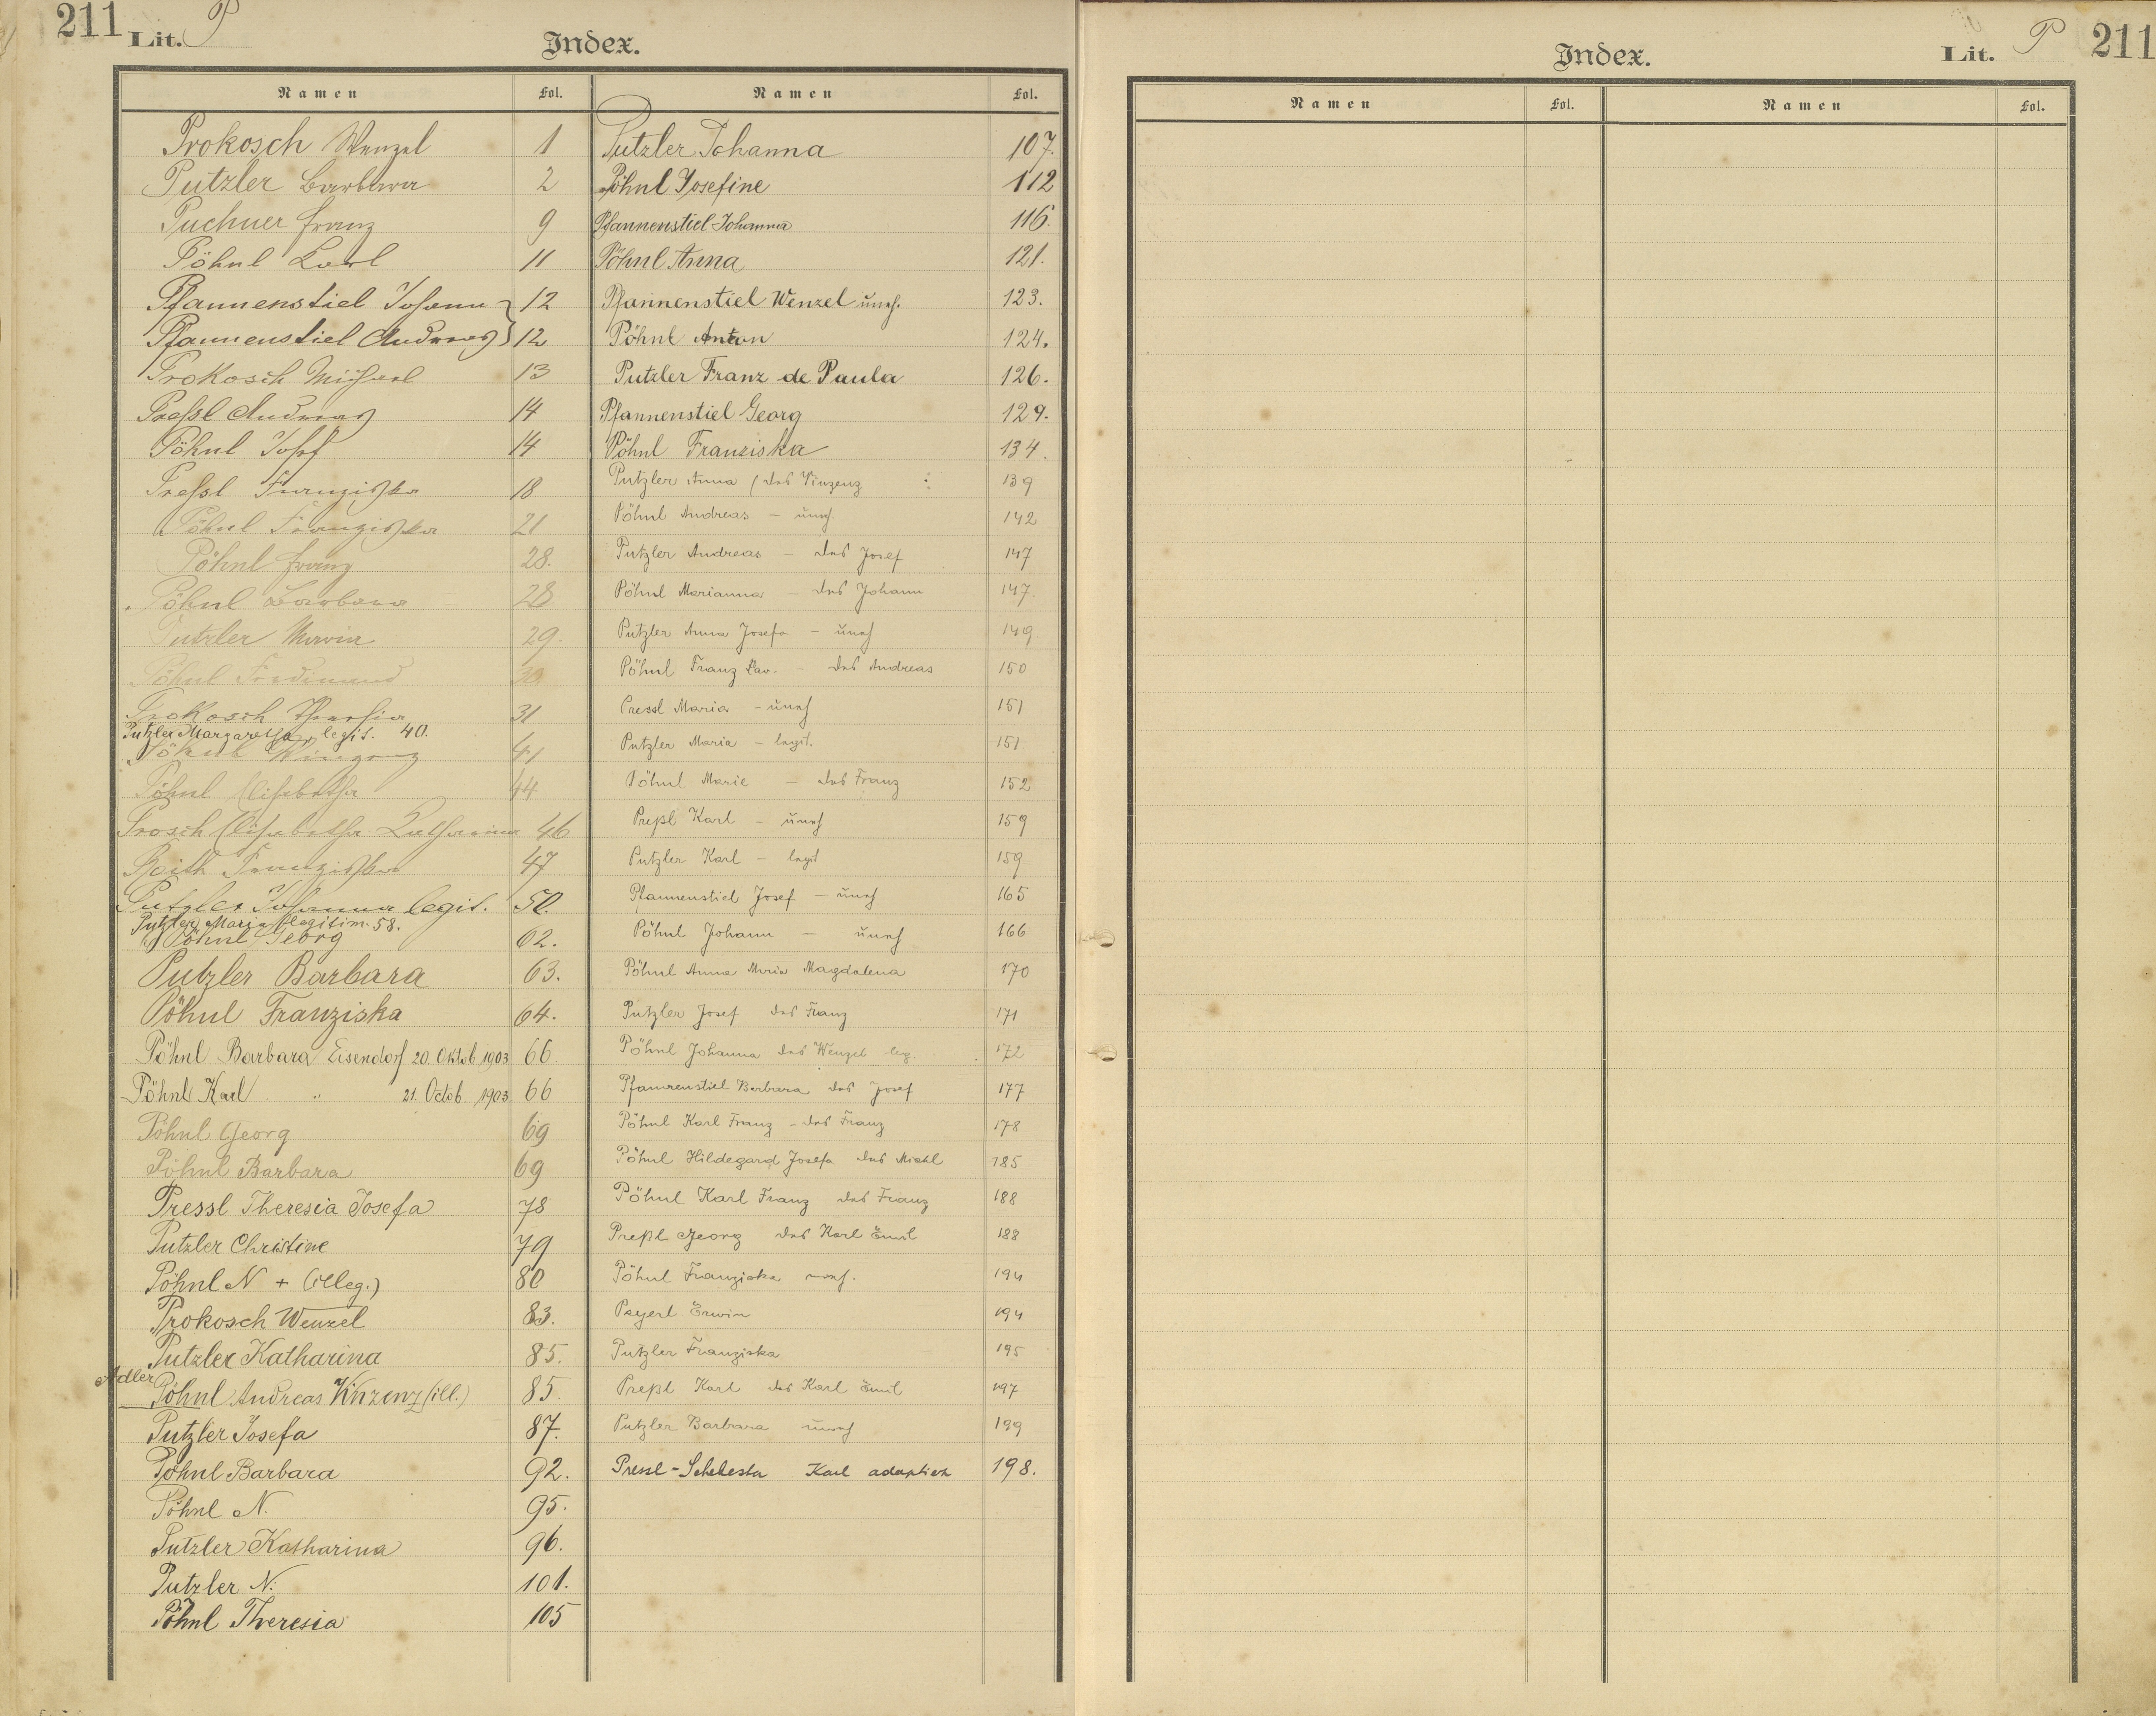 211 Lit. P Index.
Namen Fol. Namen Fol.
Prokosch Wenzel 1
Putzler Barbara 2
Puchner Franz 9
Pöhnl Karl 11
Pfannenstiel Johann 12
Pfannenstiel Andreas 12
Prokosch Michael 13
Preßl Andreas 14
Pöhnl Josef 14
Preßl Franziska 18
Pöhnl Franziska 21
Pöhnl Franz 28.
Pöhnl Barbara 28
Putzler Maria 29.
Pöhnl Ferdinand 30
Prokosch Theresia 31
Putzler Margaretha, legit. 40.
Pöhnl Vinzenz 41
Pöhnl Elisabetha 44
Prosch Elisabetha Katharina 46
Franziska 47
Putzler Johanna legit. 50.
Putzler Maria legitim. 58.
Pöhnl Georg 62.
Putzler Barbara 63.
Pöhnl Franziska 64.
Pöhnl Barbara Eisendorf 20. Oktob. 1903 66
Pöhnl Karl " 21. Octob. 1903 66
Pöhnl Georg 69
Pöhnl Barbara 69
Pressl Theresia Josefa 78
Putzler Christine 79
Pöhnl N + (illeg.) 80
Prokosch Wenzel 83.
Putzler Katharina 85.
Adler
Pöhnl Andreas Vinzenz (ill.) 85.
Putzler Josefa 87.
Pöhnl Barbara 92.
Pöhnl N. 95.
Putzler Katharina 96.
Putzler N. 101.
Pöhnl Theresia 105
Putzler Johanna 107.
Pöhnl Josefine 112
Pfannenstiel Johanna 116.
Pöhnl Anna 121.
Pfannenstiel Wenzel uneh. 123.
Pöhnl Anton 124.
Putzler Franz de Paula 126.
Pfannenstiel Georg 129.
Pöhnl Franziska 134.
Putzler Anna (des Vinzenz : 139
Pöhnl Andreas - uneh. 142
Putzler Andreas - des Josef 147
Pöhnl Marianna - des Johann 147.
Putzler Anna Josefa - uneh 149
Pöhnl Franz Xav. - des Andreas 150
Pressl Maria - uneh 151
Putzler Maria - legit. 151
Pöhnl Marie - des Franz 152
Preßl Karl - uneh 159
Putzler Karl - legit 159
Pfannenstiel Josef - uneh 165
Pöhnl Johann - uneh 166
Pöhnl Anna Maria Magdalena 170
Putzler Josef des Franz 171
Pöhnl Johanna des Wenzel leg. 172
Pfannenstiel Barbara des Josef 177
Pöhnl Karl Franz - des Franz 178
Pöhnl Hildegard Josefa des Michl 185
Pöhnl Karl Franz des Franz 188
Preßl Georg des Karl Emil 188
Pöhnl Franziska uneh. 194
Payerl Erwin 194
Putzler Franziska 195
Preßl Karl des Karl Emil 197
Putzler Barbara uneh 199
Pressl-Schebesta Karl adoptiert 198.
Index. Lit. P 211
Namen Fol. Namen Fol.